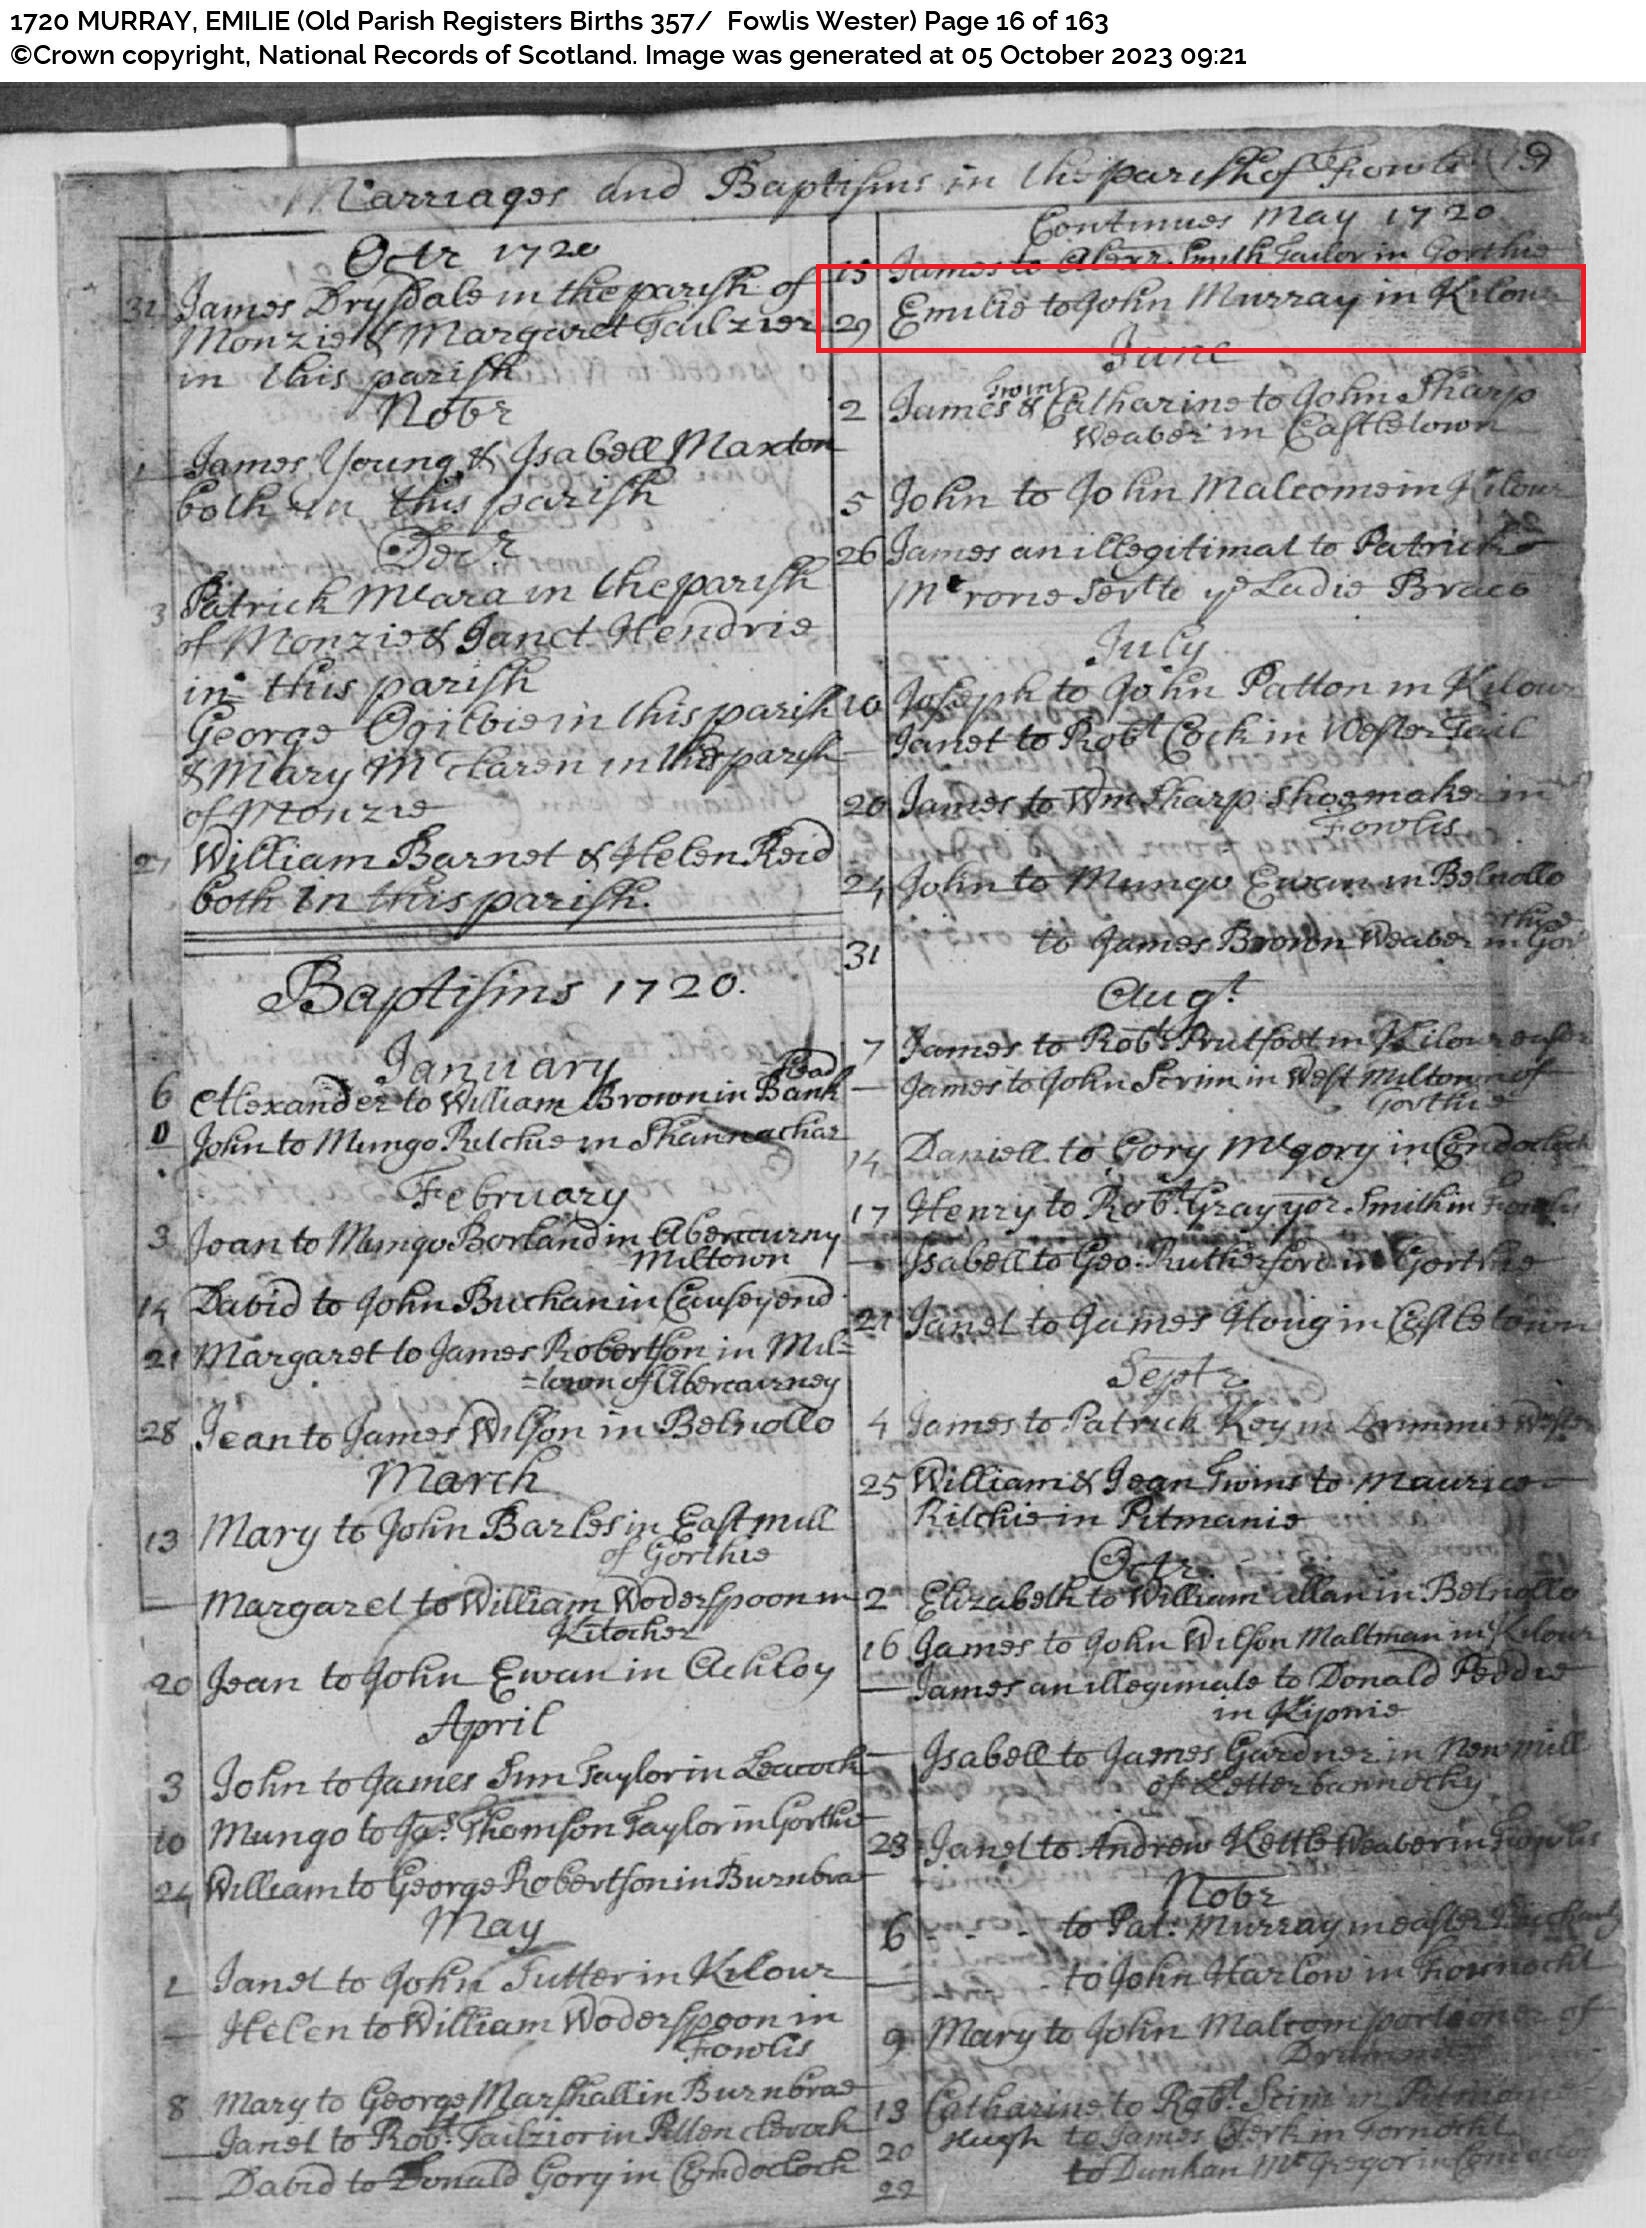 1720 MURRAY, EMILIE (Old Parish Registers Births 357/ Fowlis Wester) Page 16 of 163
©Crown copyright, National Records of Scotland. Image was generated at 05 October 2023 09:21
Marriages and Baptisms in the parish of Fowlis 19
Octr 1720
31 James Drysdale in the parish of
Monzie & Margaret Tailzier
in this parish
Nobr
1 James Young & Isabell Maxton
both in this parish
Decr
3 Patrick Mcara in the parish
of Monzie & Janet Hendrie
in this parish
George Ogilbie in this parish
& Mary McClaren in the parish
of Monzie
27 William Barnet & Helen Reid
both In this parish.
Baptisms 1720.
January
6 Alexander to William Brown in Bank
head
John to Mungo Ritchie in Shannachar
February
3 Joan to Mungo Borland in Abercurny
Miltown
14 David to John Buchan in Causeyend
21 Margaret to James Robertson in Mil=
=town of Abercairney
28 Jean to James Wilson in Belnollo
March
13 Mary to John Barles in Eastmill
of Gorthie
— Margaret to William Woderspoon in
Kitocher
20 Jean to John Ewan in Achloy
April
3 John to James Sim Taylor in Leacock
10 Mungo to Jas. Thomson Taylor in Gorthie
24 William to George Robertson in Burnbrae
May
1 Janet to John Tutter in Kilour
— Helen to William Woderspoon in
Fowlis
8 Mary to George Marshall in Burnbrae
— Janet to Robt. Tailzior in
— David to Donald Gory in Condocloch
Continues May 1720
15 James to Alexr. Smith Tailor in Gorthie
29 Emilie to John Murray in Kilour
June
2 James & Catharine to John Sharp
Twins
Weaber in Castletown
5 John to John Malcome in Kilour
26 James an illegitimat to Patrick
Mcrorie Servt to ye Ladie Braco
July
10 Joseph to John Patton in Kilour
— Janet to Robt Cock in Wester Fail
20 James to Wm Sharp Shoemaker in
Fowlis
24 John to Mungo Ewan in Belnollo
31 to James Brown Weaber in Gor
thie
Augt
7 James to Robt. Prutfoot in Kilour
— James to John Scrim in West Miltown of
Gorthie
14 Daniell to Gory Mcgory in Condocloch
17 Henry to Robt. Gray yor. Smith in Fowlis
— Isabell to Geo. Rutherford in Gorthie
21 Janet to James Houg in Castletown
Septr
4 James to Patrick Key in Drimmie Wester
25 William & Jean Twins to Maurice
Ritchie in Pitmanie
Octr.
2 Elizabeth to William Allan in Belnollo
16 James to John Wilson Maltman in Kilour
— James an illegimate to Donald Peddie
in Kipnie
— Isabell to James Gardner in Newmill
of Letterbannochy
23 Janet to Andrew Kettle Weaber in Fowlis
Nobr
6 - - - to Pat. Murray in easter
— - to John Harlow in Fornocht
9 Mary to John Malcom portioner of
Drummie
13 Catharine to Robt. Scrim in Pitmonie
20 Hugh to James Clerk in Fornocht
22 to Dunkan McGregor in